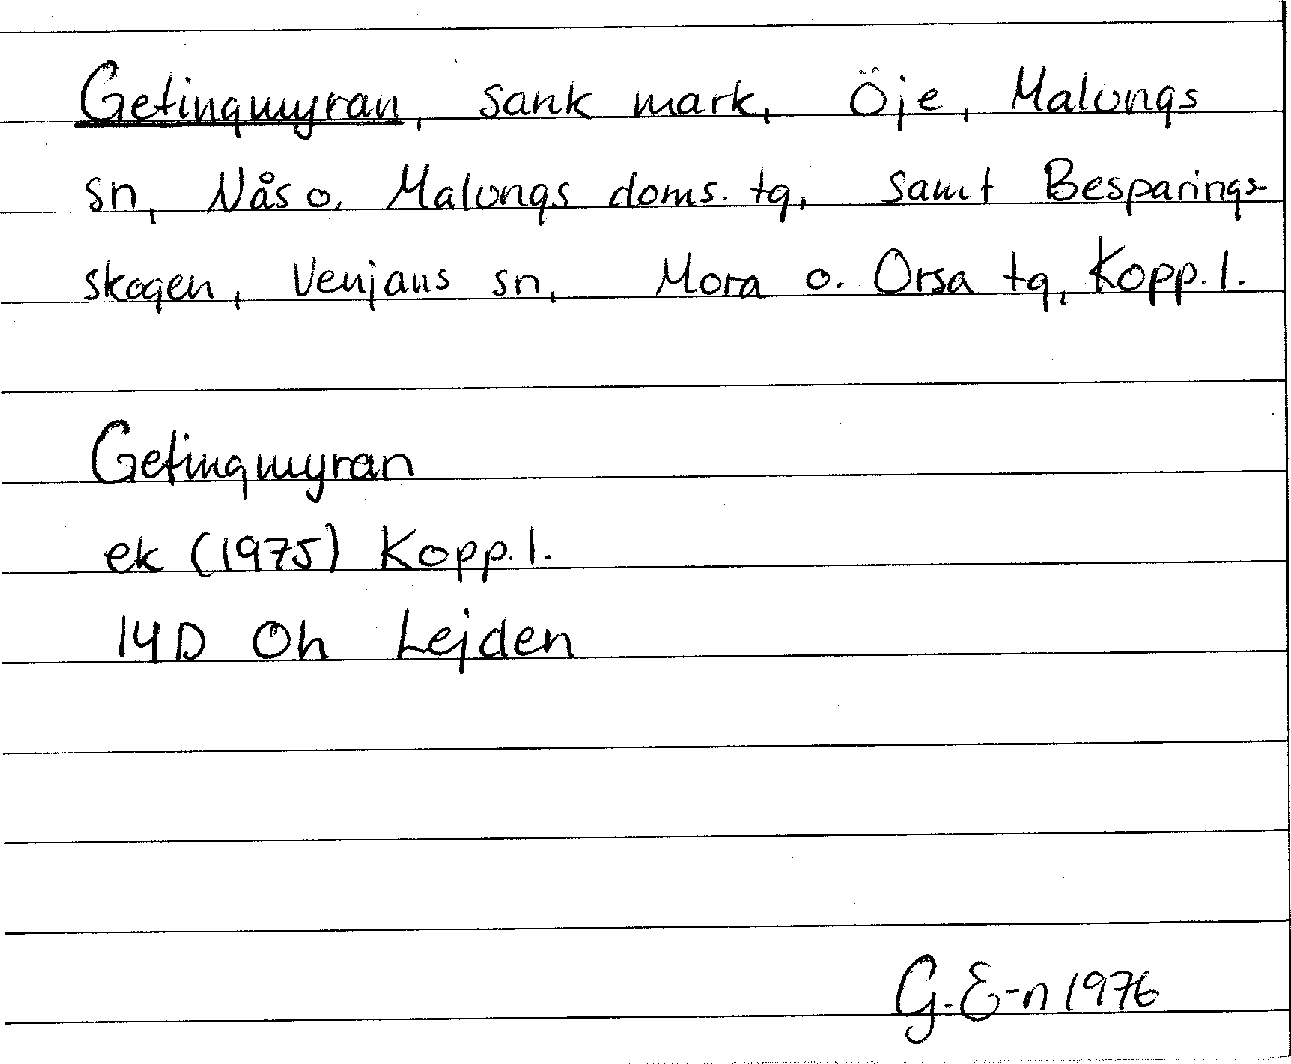 Getingmyran, sank mark, Öje, Malungs
sn, Nås o. Malungs doms. tg, samt Besparings-
skogen, Venjans sn, Mora o. Orsa tg, Kopp. l.
Getingmyran
ek (1975) Kopp. l.
14D 0h Lejden
G. E-n 1976